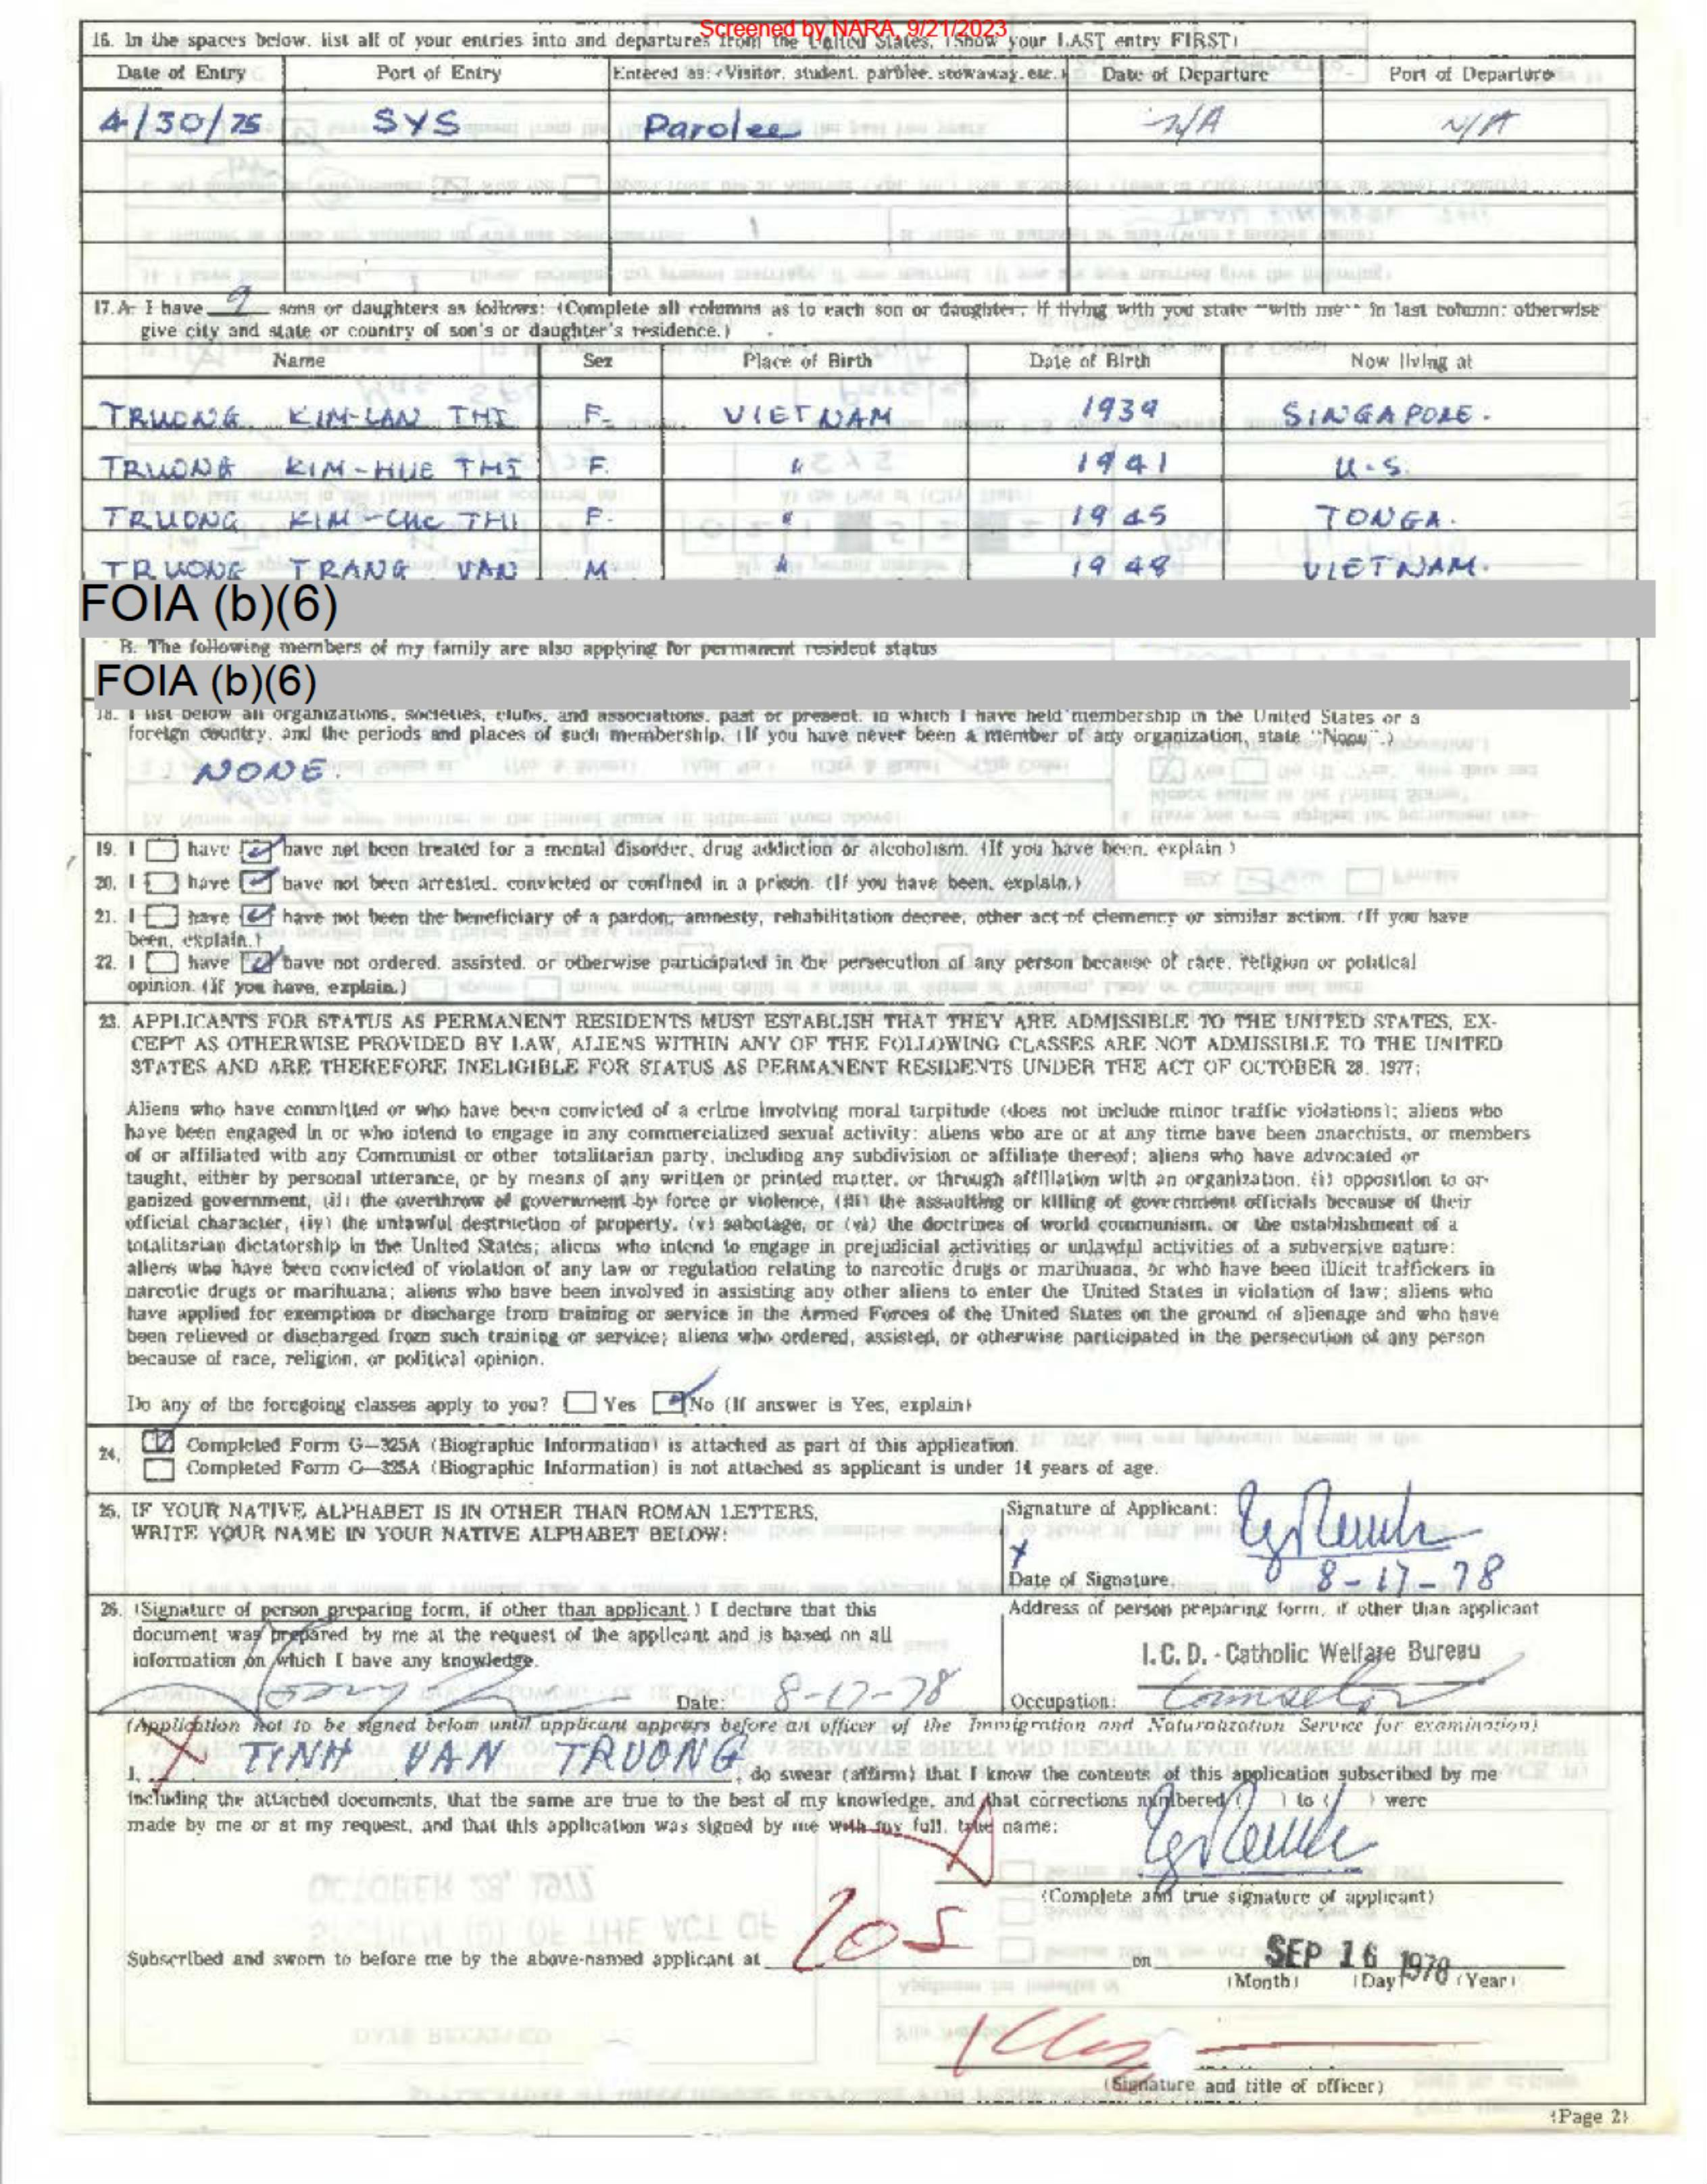 Screened by NARA, 9/21/2023
16. In the spaces below, list all of your entries into and departures from the United States. (Show your LAST entry FIRST)
Date of Entry Port of Entry Entered as: (Visitor, student, parolee, stowaway, etc.) Date of Departure Port of Departure
4/30/75 SYS Parolee N/A N/A
17. A. I have 9 sons or daughters as follows: (Complete all columns as to each son or daughter; if living with you state "with me" in last column; otherwise
give city and state or country of son's or daughter's residence.)
Name Sex Place of Birth Date of Birth Now living at
TRUONG KIM-LAN THI F. VIETNAM 1939 SINGAPORE.
TRUONG KIM-HUE THI F. " 1941 U.S.
TRUONG KIM-CUC THI F. " 1945 TONGA.
TRUONG TRANG VAN M " 1948 VIETNAM.
FOIA (b)(6)
B. The following members of my family are also applying for permanent resident status
FOIA (b)(6)
18. I list below all organizations, societies, clubs, and associations, past or present, in which I have held membership in the United States or a
foreign country, and the periods and places of such membership. (If you have never been a member of any organization, state "None".)
NONE.
19. I have have not been treated for a mental disorder, drug addiction or alcoholism. (If you have been, explain)
20. I have have not been arrested, convicted or confined in a prison. (If you have been, explain.)
21. I have have not been the beneficiary of a pardon, amnesty, rehabilitation decree, other act of clemency or similar action. (If you have
been, explain.)
22. I have have not ordered, assisted, or otherwise participated in the persecution of any person because of race, religion or political
opinion. (If you have, explain.)
23. APPLICANTS FOR STATUS AS PERMANENT RESIDENTS MUST ESTABLISH THAT THEY ARE ADMISSIBLE TO THE UNITED STATES, EX-
CEPT AS OTHERWISE PROVIDED BY LAW, ALIENS WITHIN ANY OF THE FOLLOWING CLASSES ARE NOT ADMISSIBLE TO THE UNITED
STATES AND ARE THEREFORE INELIGIBLE FOR STATUS AS PERMANENT RESIDENTS UNDER THE ACT OF OCTOBER 28, 1977:
Aliens who have committed or who have been convicted of a crime involving moral turpitude (does not include minor traffic violations); aliens who
have been engaged in or who intend to engage in any commercialized sexual activity; aliens who are or at any time have been anarchists, or members
of or affiliated with any Communist or other totalitarian party, including any subdivision or affiliate thereof; aliens who have advocated or
taught, either by personal utterance, or by means of any written or printed matter, or through affiliation with an organization, (i) opposition to or-
ganized government, (ii) the overthrow of government by force or violence, (iii) the assaulting or killing of government officials because of their
official character, (iv) the unlawful destruction of property, (v) sabotage, or (vi) the doctrines of world communism, or the establishment of a
totalitarian dictatorship in the United States; aliens who intend to engage in prejudicial activities or unlawful activities of a subversive nature;
aliens who have been convicted of violation of any law or regulation relating to narcotic drugs or marihuana, or who have been illicit traffickers in
narcotic drugs or marihuana; aliens who have been involved in assisting any other aliens to enter the United States in violation of law; aliens who
have applied for exemption or discharge from training or service in the Armed Forces of the United States on the ground of alienage and who have
been relieved or discharged from such training or service; aliens who ordered, assisted, or otherwise participated in the persecution of any person
because of race, religion, or political opinion.
Do any of the foregoing classes apply to you? Yes No (If answer is Yes, explain)
24. Completed Form G-325A (Biographic Information) is attached as part of this application.
Completed Form G-325A (Biographic Information) is not attached as applicant is under 14 years of age.
25. IF YOUR NATIVE ALPHABET IS IN OTHER THAN ROMAN LETTERS,
WRITE YOUR NAME IN YOUR NATIVE ALPHABET BELOW:
Signature of Applicant:
X
Date of Signature. 8-17-78
26. (Signature of person preparing form, if other than applicant.) I declare that this
document was prepared by me at the request of the applicant and is based on all
information on which I have any knowledge.
Date: 8-17-78
Address of person preparing form, if other than applicant
I.C.D. - Catholic Welfare Bureau
Occupation: Counselor
(Application not to be signed below until applicant appears before an officer of the Immigration and Naturalization Service for examination)
I, X TINH VAN TRUONG, do swear (affirm) that I know the contents of this application subscribed by me
including the attached documents, that the same are true to the best of my knowledge, and that corrections numbered ( ) to ( ) were
made by me or at my request, and that this application was signed by me with my full, true name:
(Complete and true signature of applicant)
Subscribed and sworn to before me by the above-named applicant at LOS on SEP 16 1978
(Month) (Day) (Year)
(Signature and title of officer)
(Page 2)